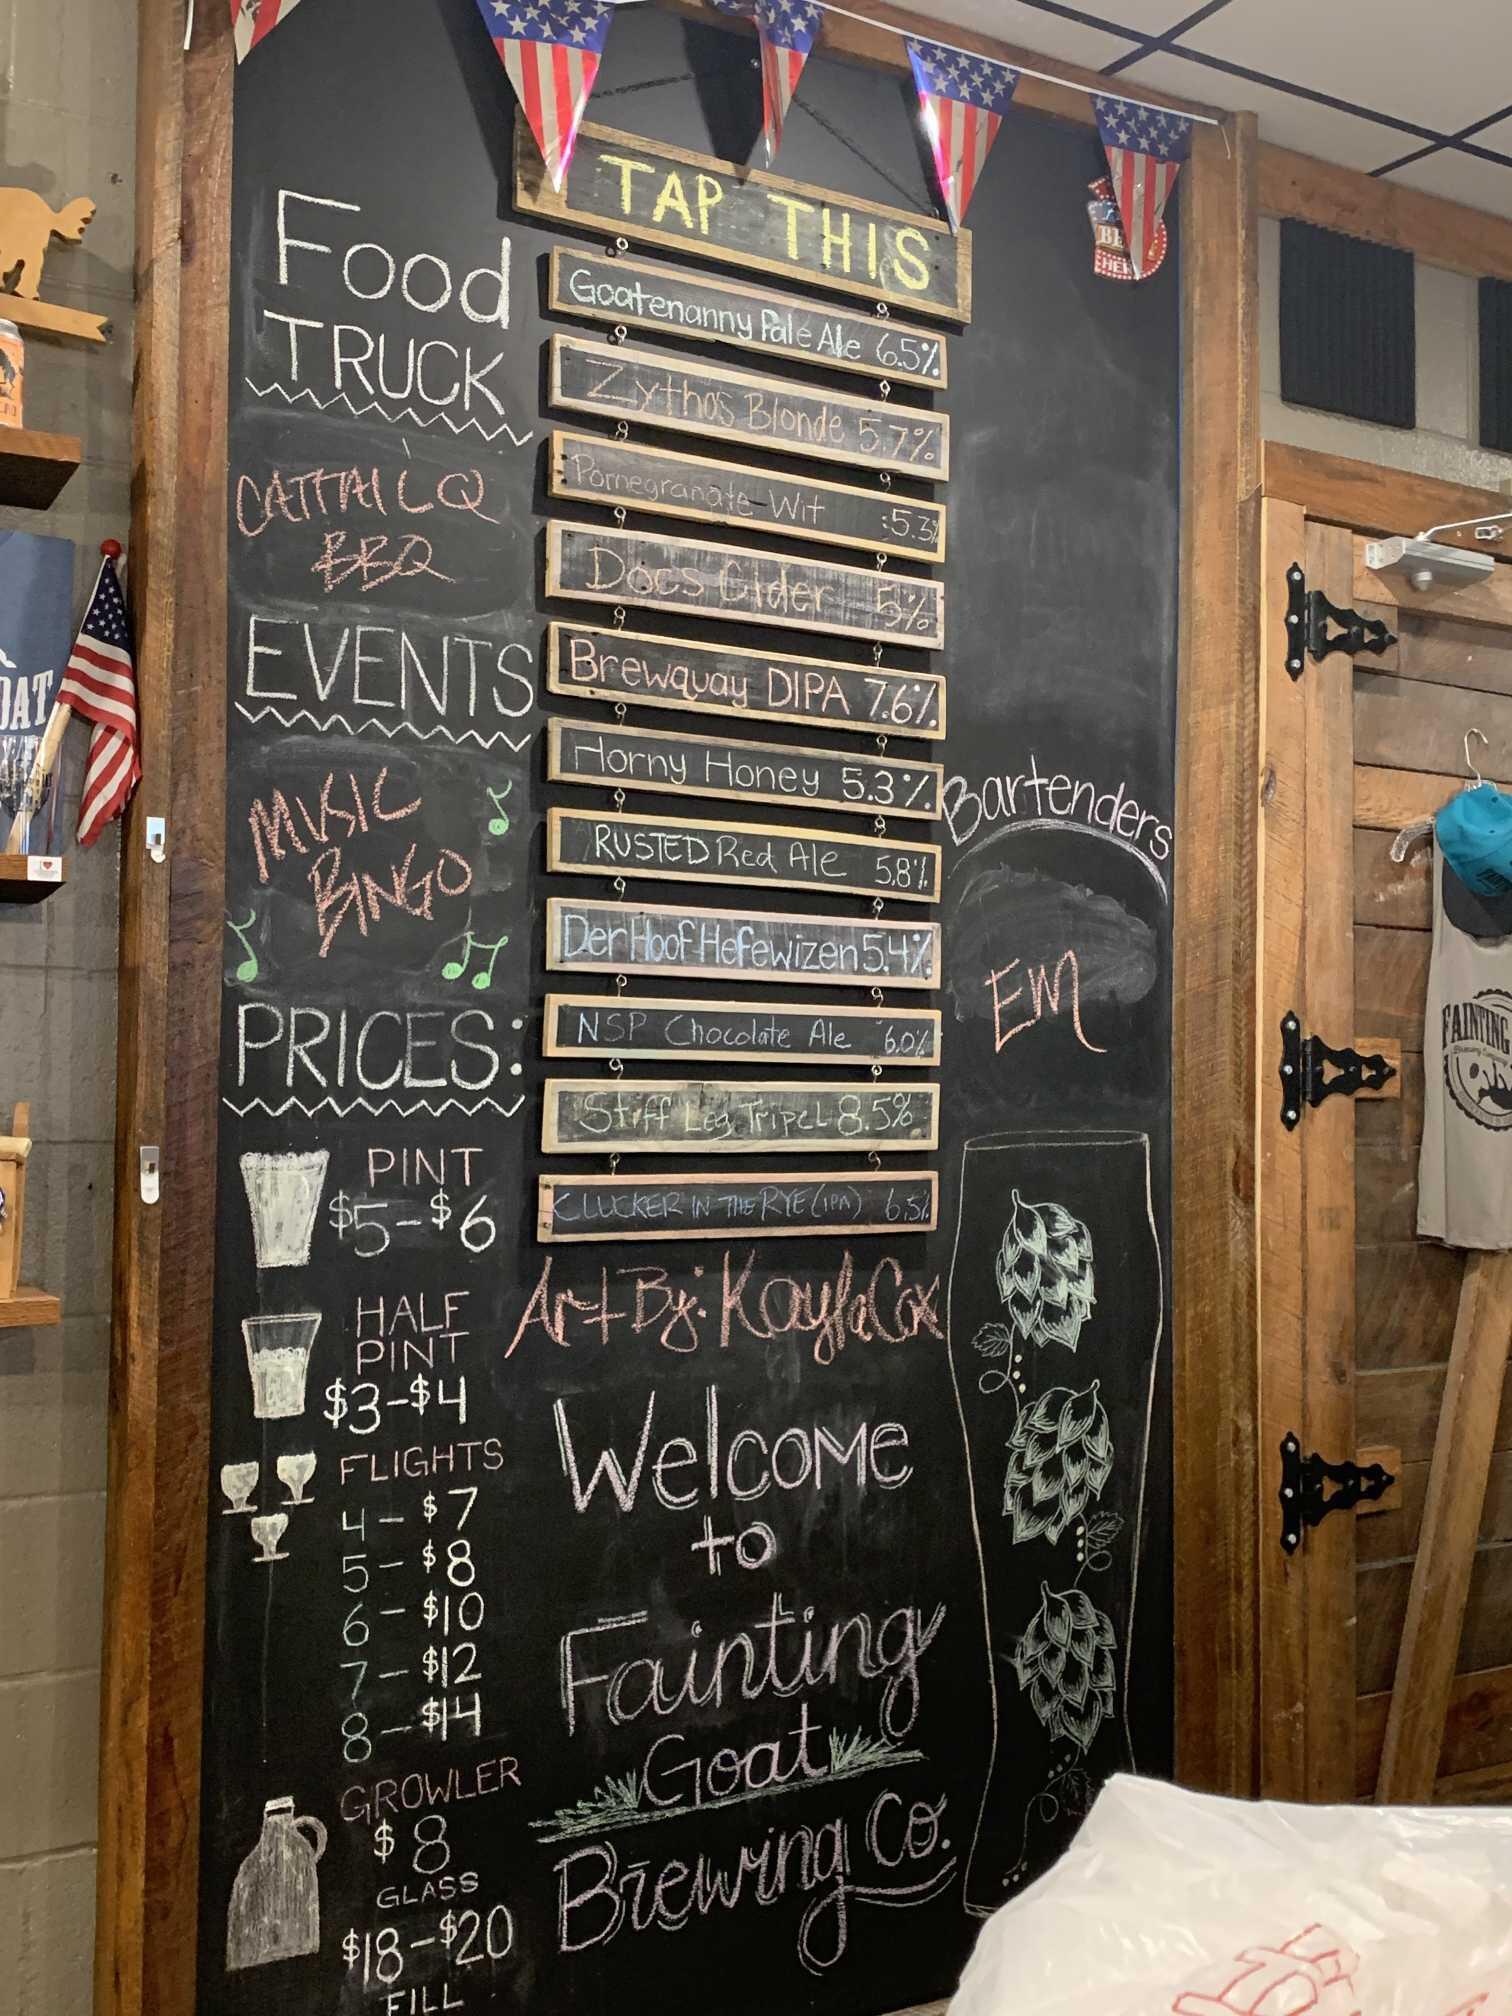 Food
TRUCK
CATTAIL Q
BBQ
EVENTS
MUSIC
BINGO
PRICES:
PINT
$5-$6
HALF
PINT
$3-$4
FLIGHTS
4- $7
5- $8
6- $10
7- $12
8- $14
GROWLER
$8
GLASS
$18-$20
FILL
TAP THIS
Goatenanny Pale Ale 6.5%
Zythos Blonde 5.7%
Pomegranate Wit 5.3%
Docs Cider 5%
Brewquay DIPA 7.6%
Horny Honey 5.3%
RUSTED Red Ale 5.8%
Der Hoof Hefewizen 5.4%
NSP Chocolate Ale 6.0%
Stiff Leg Tripel 8.5%
CLUCKER IN THE RYE (IPA) 6.5%
Art By: Kayla Cox
Welcome
to
Fainting
Goat
Brewing Co.
Bartenders
Em
OAT
FAINTING